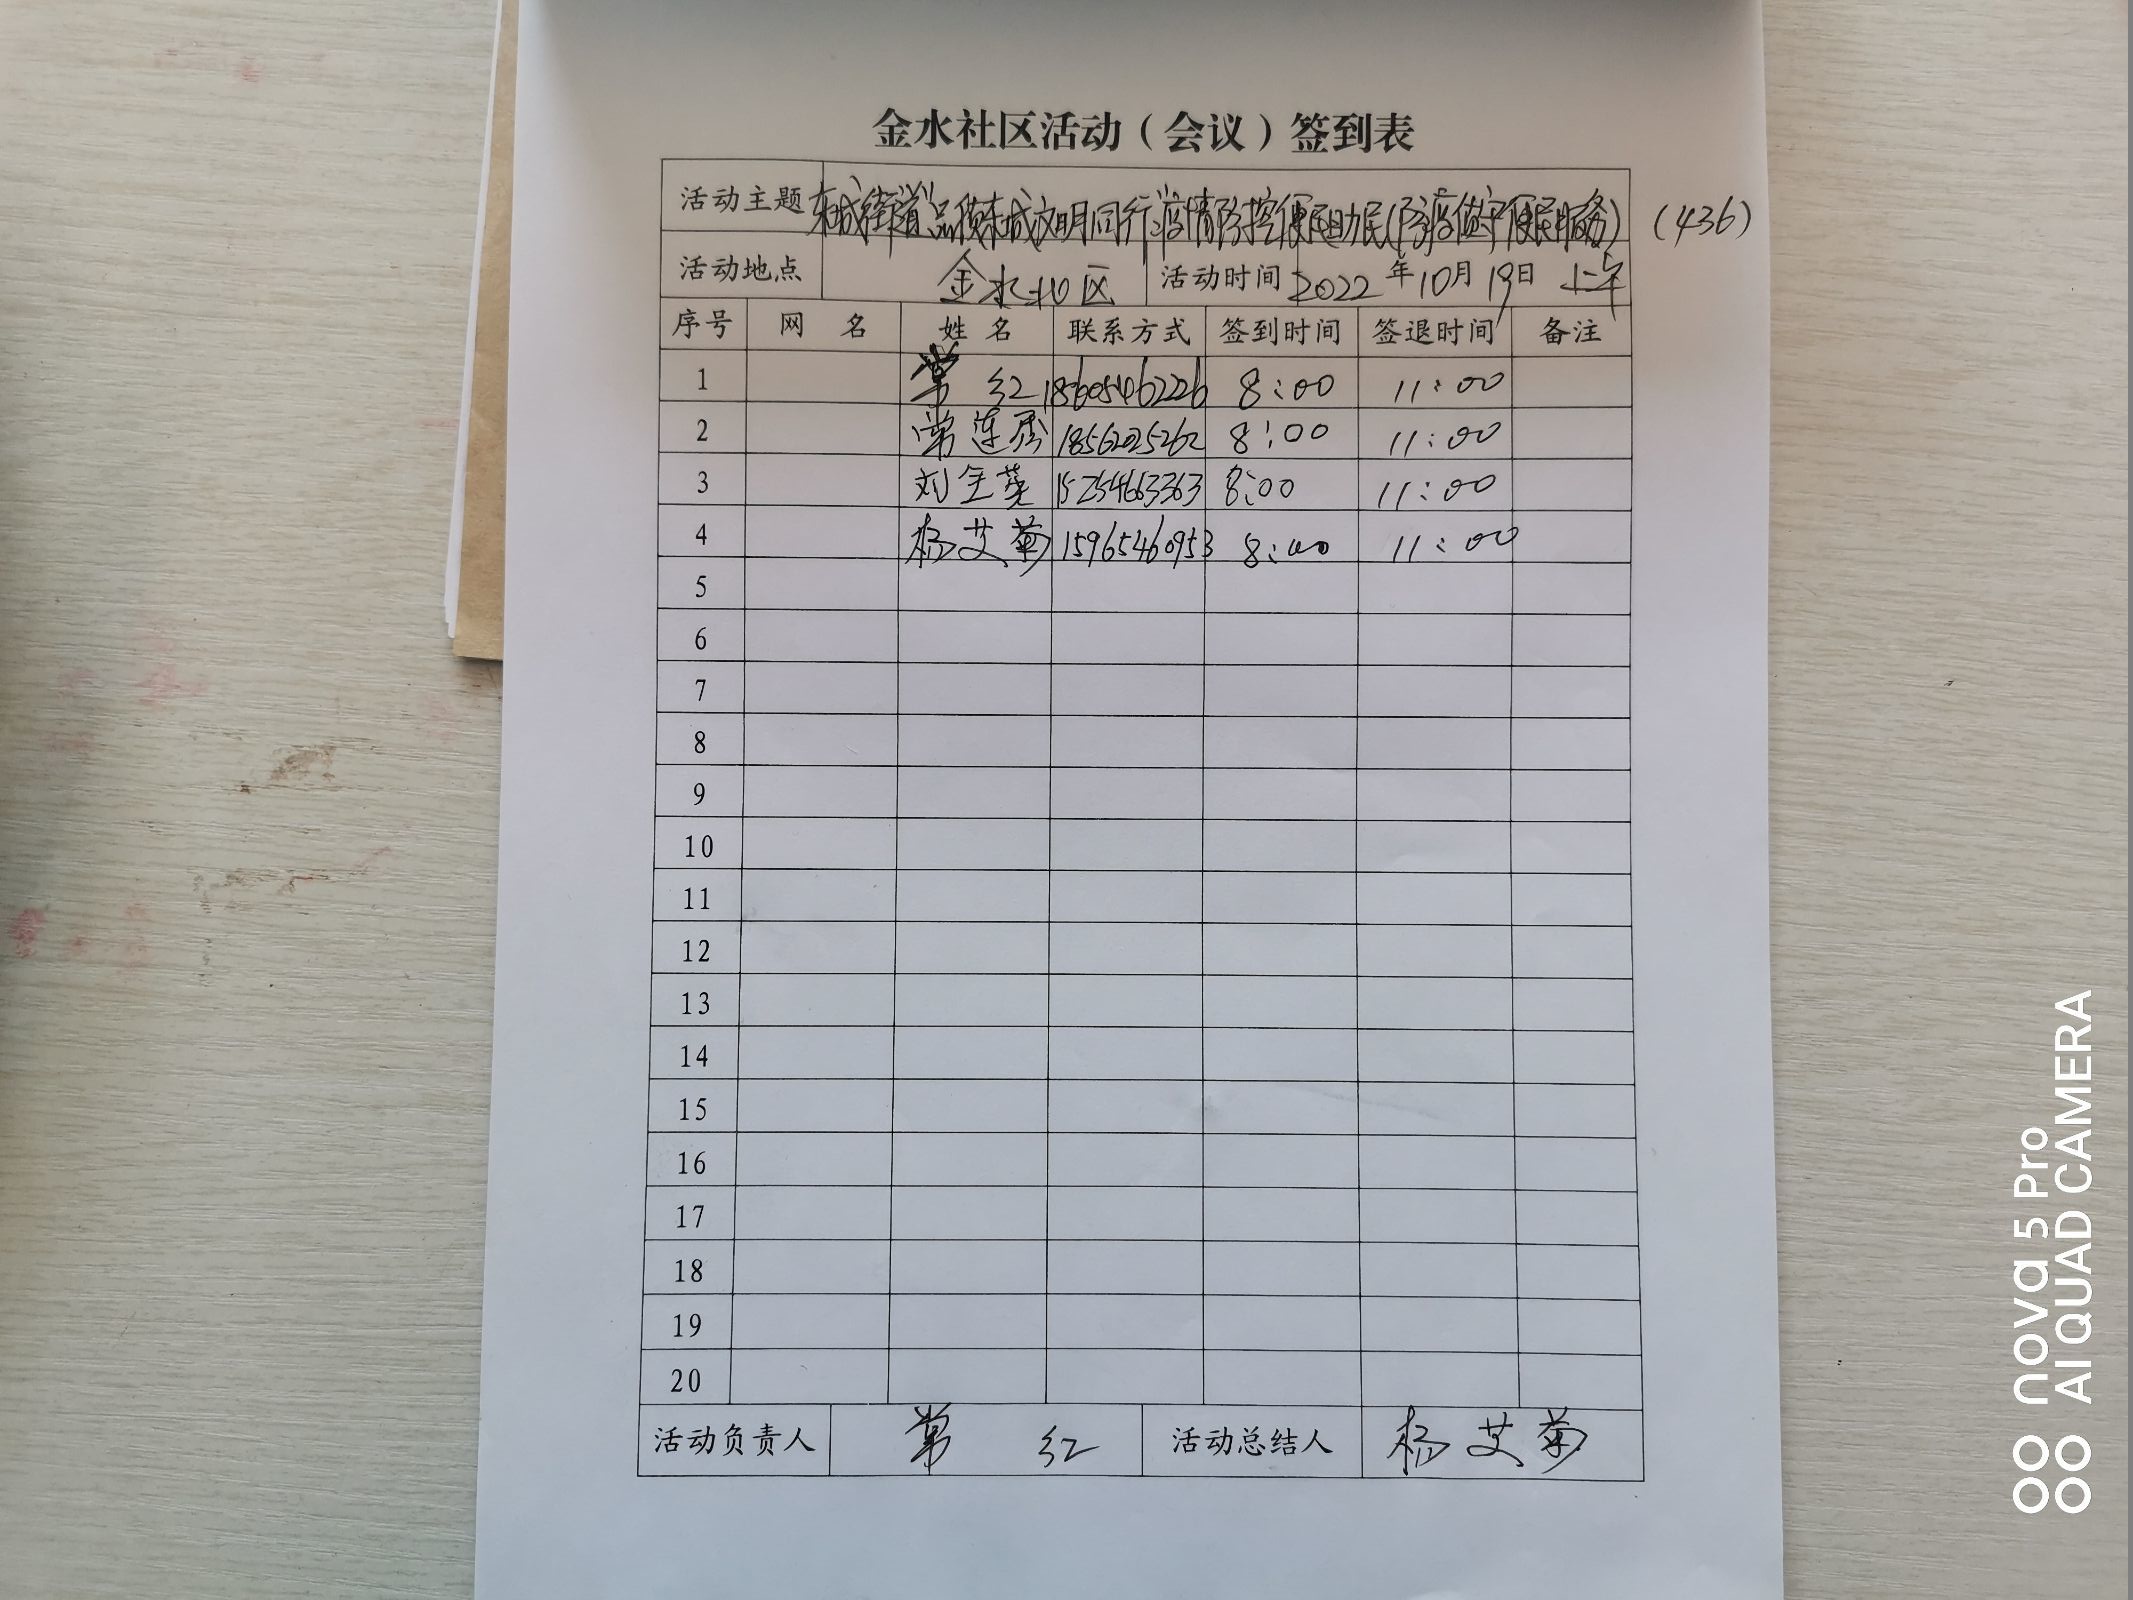 金水社区活动（会议）签到表
活动主题 东城街道品质东城文明同行:疫情防控便民助民(防疫值守便民服务) (436)
活动地点 金水社区 活动时间 2022年10月19日 上午
序号 网 名 姓 名 联系方式 签到时间 签退时间 备注
1 常 红 18605462226 8:00 11:00
2 常连秀 18562025262 8:00 11:00
3 刘全英 15254663363 8:00 11:00
4 杨艾菊 15965460953 8:00 11:00
5
6
7
8
9
10
11
12
13
14
15
16
17
18
19
20
活动负责人 常 红 活动总结人 杨艾菊
nova 5 Pro
AI QUAD CAMERA